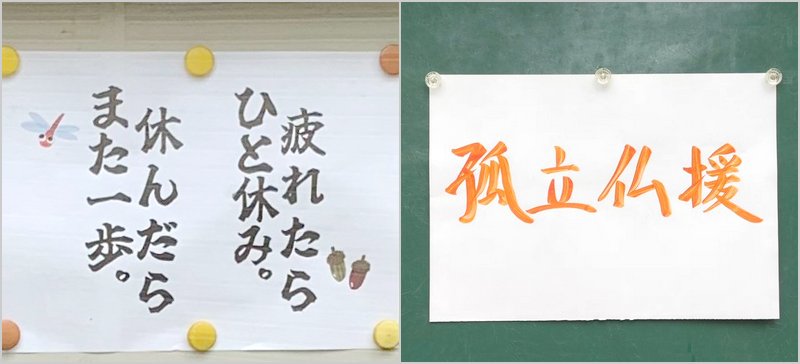 疲れたら
ひと休み。
休んだら
また一歩。
孤立仏援